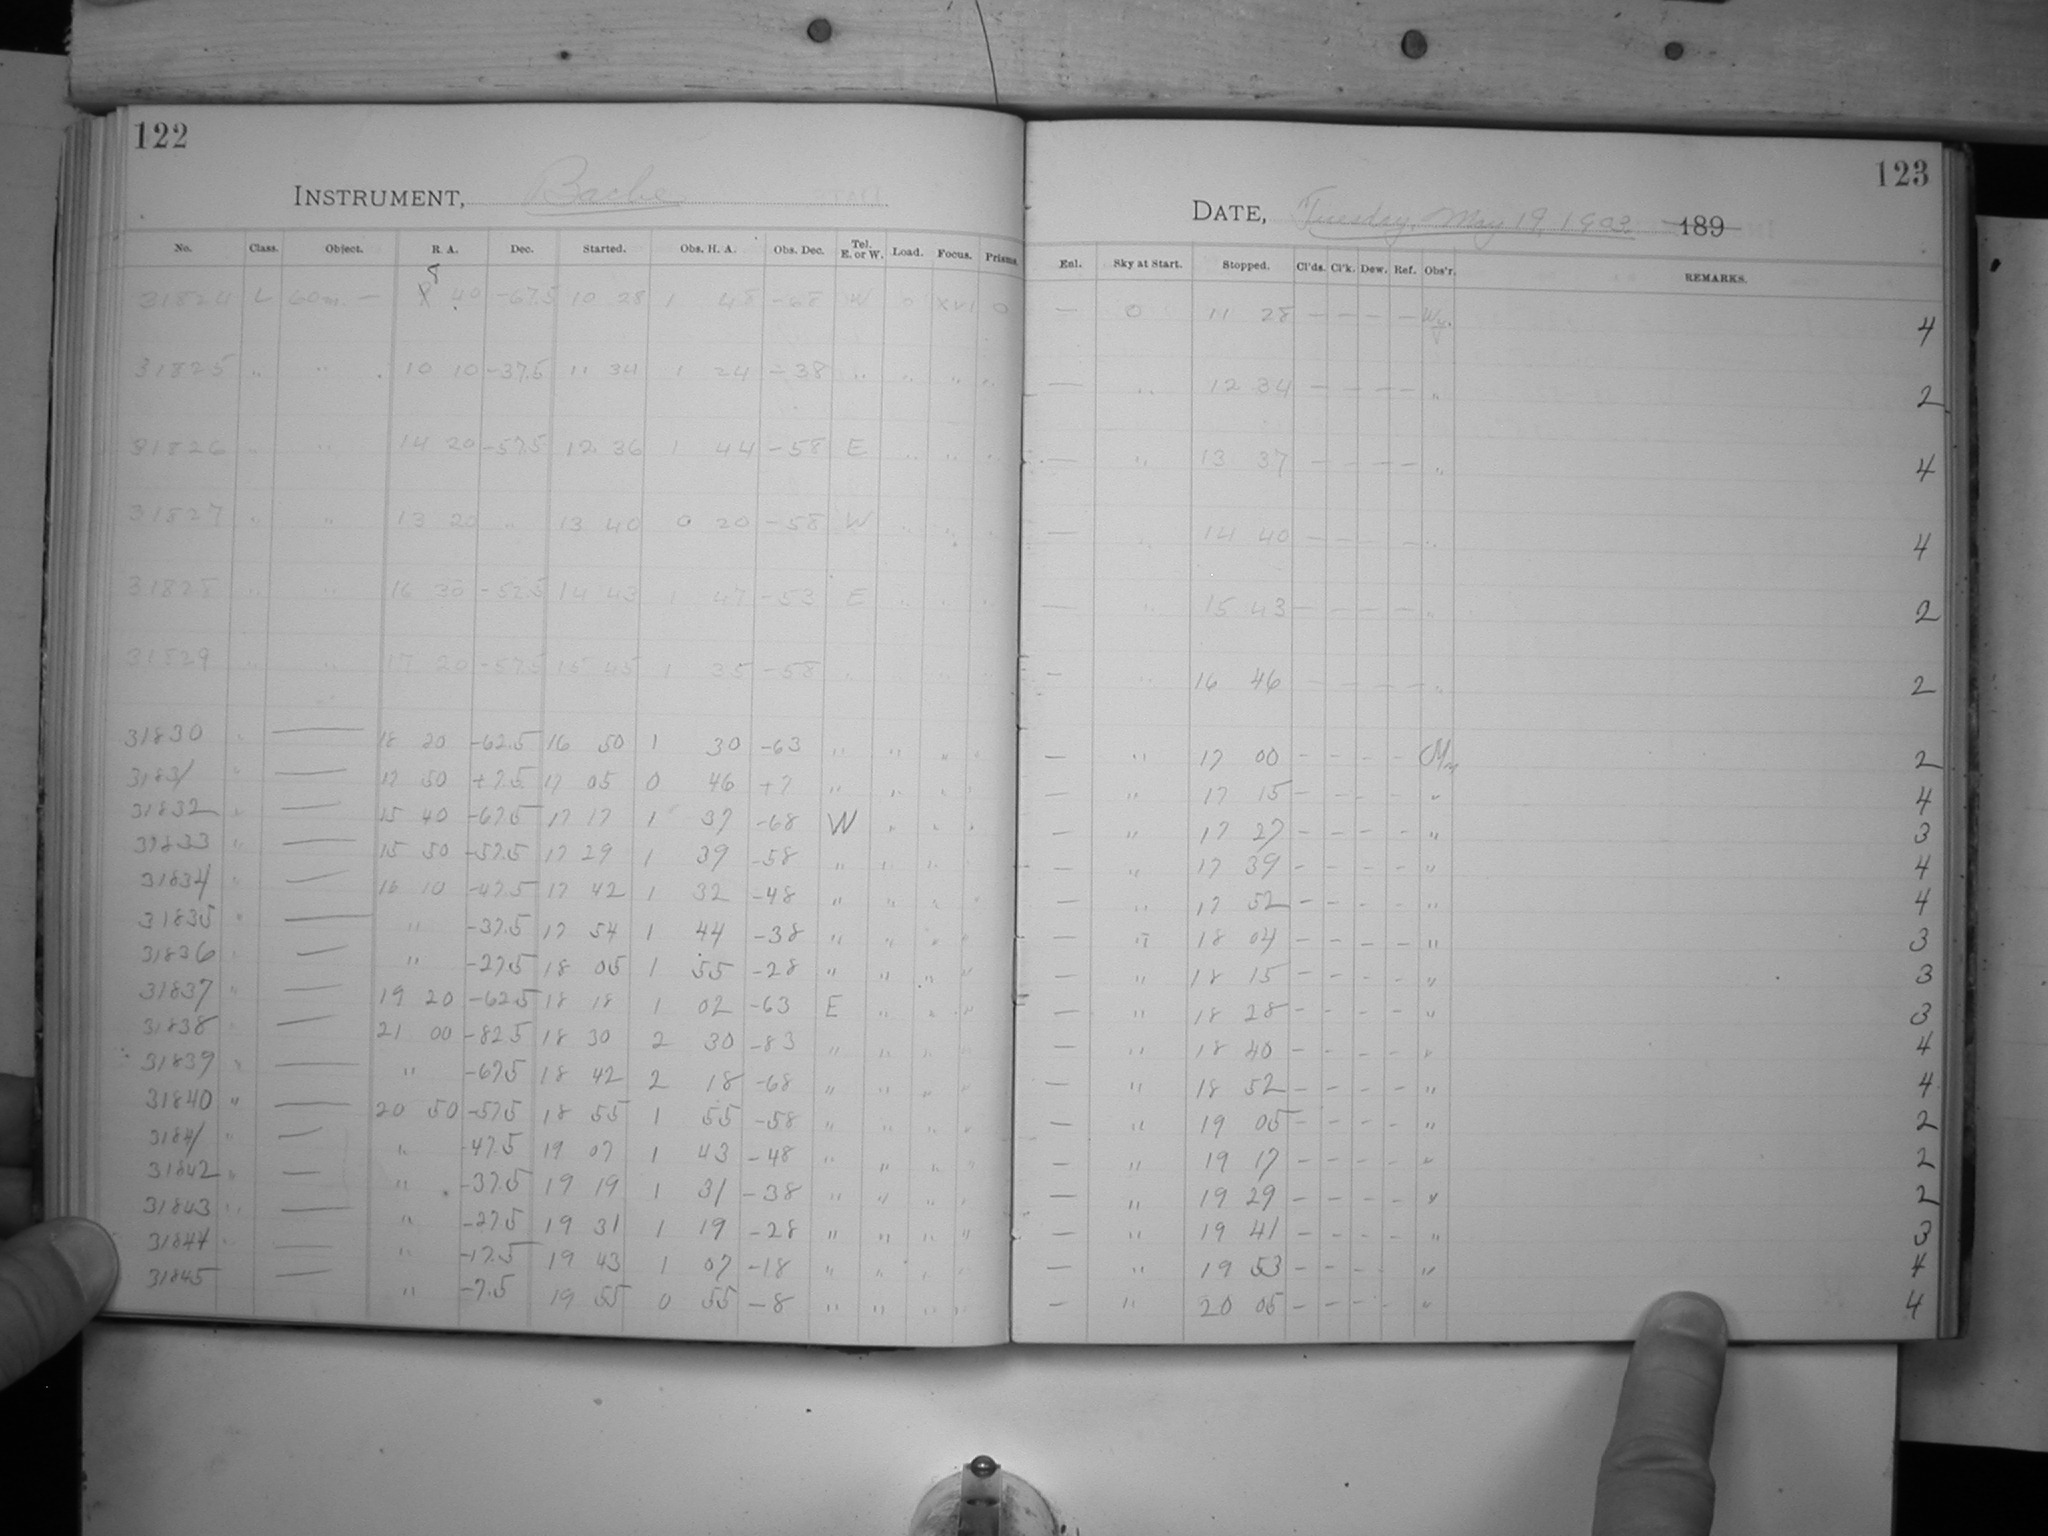 122
INSTRUMENT, Bache
No. Class. Object. R. A. Dec. Started. Obs. H. A. Obs. Dec. Tel. E. or W. Load. Focus. Prisms.
31824 L 60m. — 8 40 -67.5 10 28 1 48 -68 W 0 XVI 0
31825 " " 10 10 -37.5 11 34 1 24 -38 " " " "
31826 " " 14 20 -57.5 12 36 1 44 -58 E " " "
31827 " " 13 20 " 13 40 0 20 -58 W " " "
31828 " " 16 30 -52.5 14 43 1 47 -53 E " " "
31829 " " 17 20 -57.5 15 45 1 35 -58 " " " "
31830 " — 18 20 -62.5 16 50 1 30 -63 " " " "
31831 " — 17 50 +7.5 17 05 0 46 +7 " " " "
31832 " — 15 40 -67.5 17 17 1 37 -68 W " " "
31833 " — 15 50 -57.5 17 29 1 39 -58 " " " "
31834 " — 16 10 -47.5 17 42 1 32 -48 " " " "
31835 " — " -37.5 17 54 1 44 -38 " " " "
31836 " — " -27.5 18 05 1 55 -28 " " " "
31837 " — 19 20 -62.5 18 18 1 02 -63 E " " "
31838 " — 21 00 -82.5 18 30 2 30 -83 " " " "
31839 " — " -67.5 18 42 2 18 -68 " " " "
31840 " — 20 50 -57.5 18 55 1 55 -58 " " " "
31841 " — " -47.5 19 07 1 43 -48 " " " "
31842 " — " -37.5 19 19 1 31 -38 " " " "
31843 " — " -27.5 19 31 1 19 -28 " " " "
31844 " — " -17.5 19 43 1 07 -18 " " " "
31845 — " -7.5 19 55 0 55 -8 " " " "
123
DATE, Tuesday, May 19, 1903 189
Enl. Sky at Start. Stopped. Cl'ds. Cl'k. Dew. Ref. Obs'r. REMARKS.
— 0 11 28 — — — — Wy. 4
— " 12 34 — — — — " 2
— " 13 37 — — — — " 4
— " 14 40 — — — — " 4
— " 15 43 — — — — " 2
— " 16 46 — — — — " 2
— " 17 00 — — — — 2
— " 17 15 — — — — " 4
— " 17 27 — — — — " 3
— " 17 39 — — — — " 4
— " 17 52 — — — — " 4
— " 18 04 — — — — " 3
— " 18 15 — — — — " 3
— " 18 28 — — — — " 3
— " 18 40 — — — — " 4
— " 18 52 — — — — " 4
— " 19 05 — — — — " 2
— " 19 17 — — — — " 2
— " 19 29 — — — — " 2
— " 19 41 — — — — " 3
— " 19 53 — — — — " 4
— " 20 05 — — — — " 4